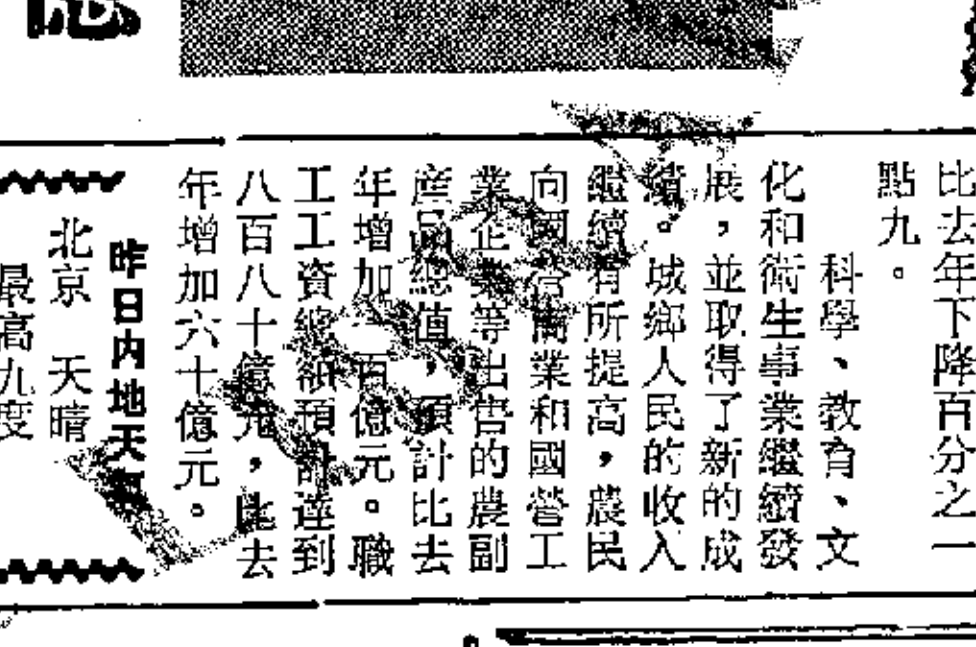 比去年下降百分之一
點九。
科學、教育、文
化和衛生事業繼續發
展，並取得了新的成
績。城鄉人民的收入
繼續有所提高，農民
向國營商業和國營工
業企業等出售的農副
産品總值，預計比去
年增加一百億元。職
工工資總額預計達到
八百八十億元，比去
年增加六十億元。
昨日内地天氣
北京　天晴
最高九度